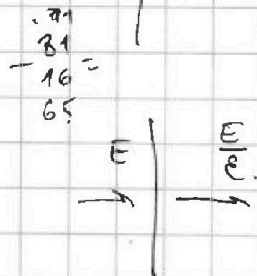 81
- 16 =
65
E
E
ε